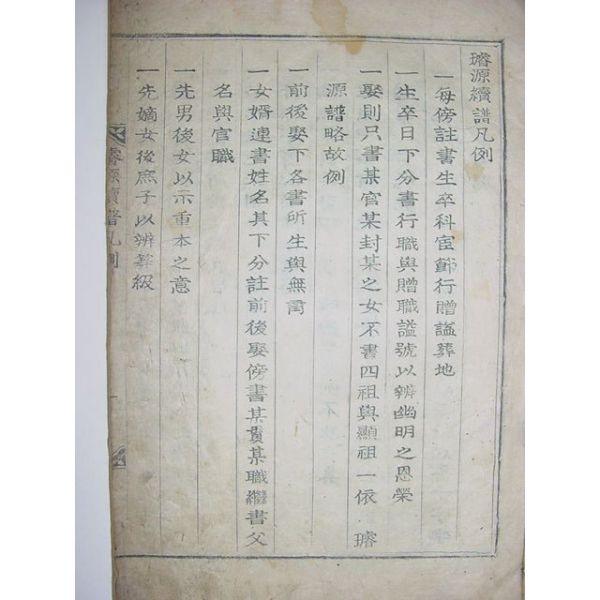 璿源續譜凡例
一每傍註書生卒科宦節行贈謚葬地
一生卒日下分書行職與贈職謚號以辨幽明之恩榮
一娶則只書某官某封某之女不書四祖與顯祖一依 璿
源譜略故例
一前後娶下各書所生與無育
一女婿連書姓名其下分註前後娶傍書某貫某職繼書父
名與官職
一先男後女以示重本之意
一先嫡女後庶子以辨等級
璿源續譜凡例